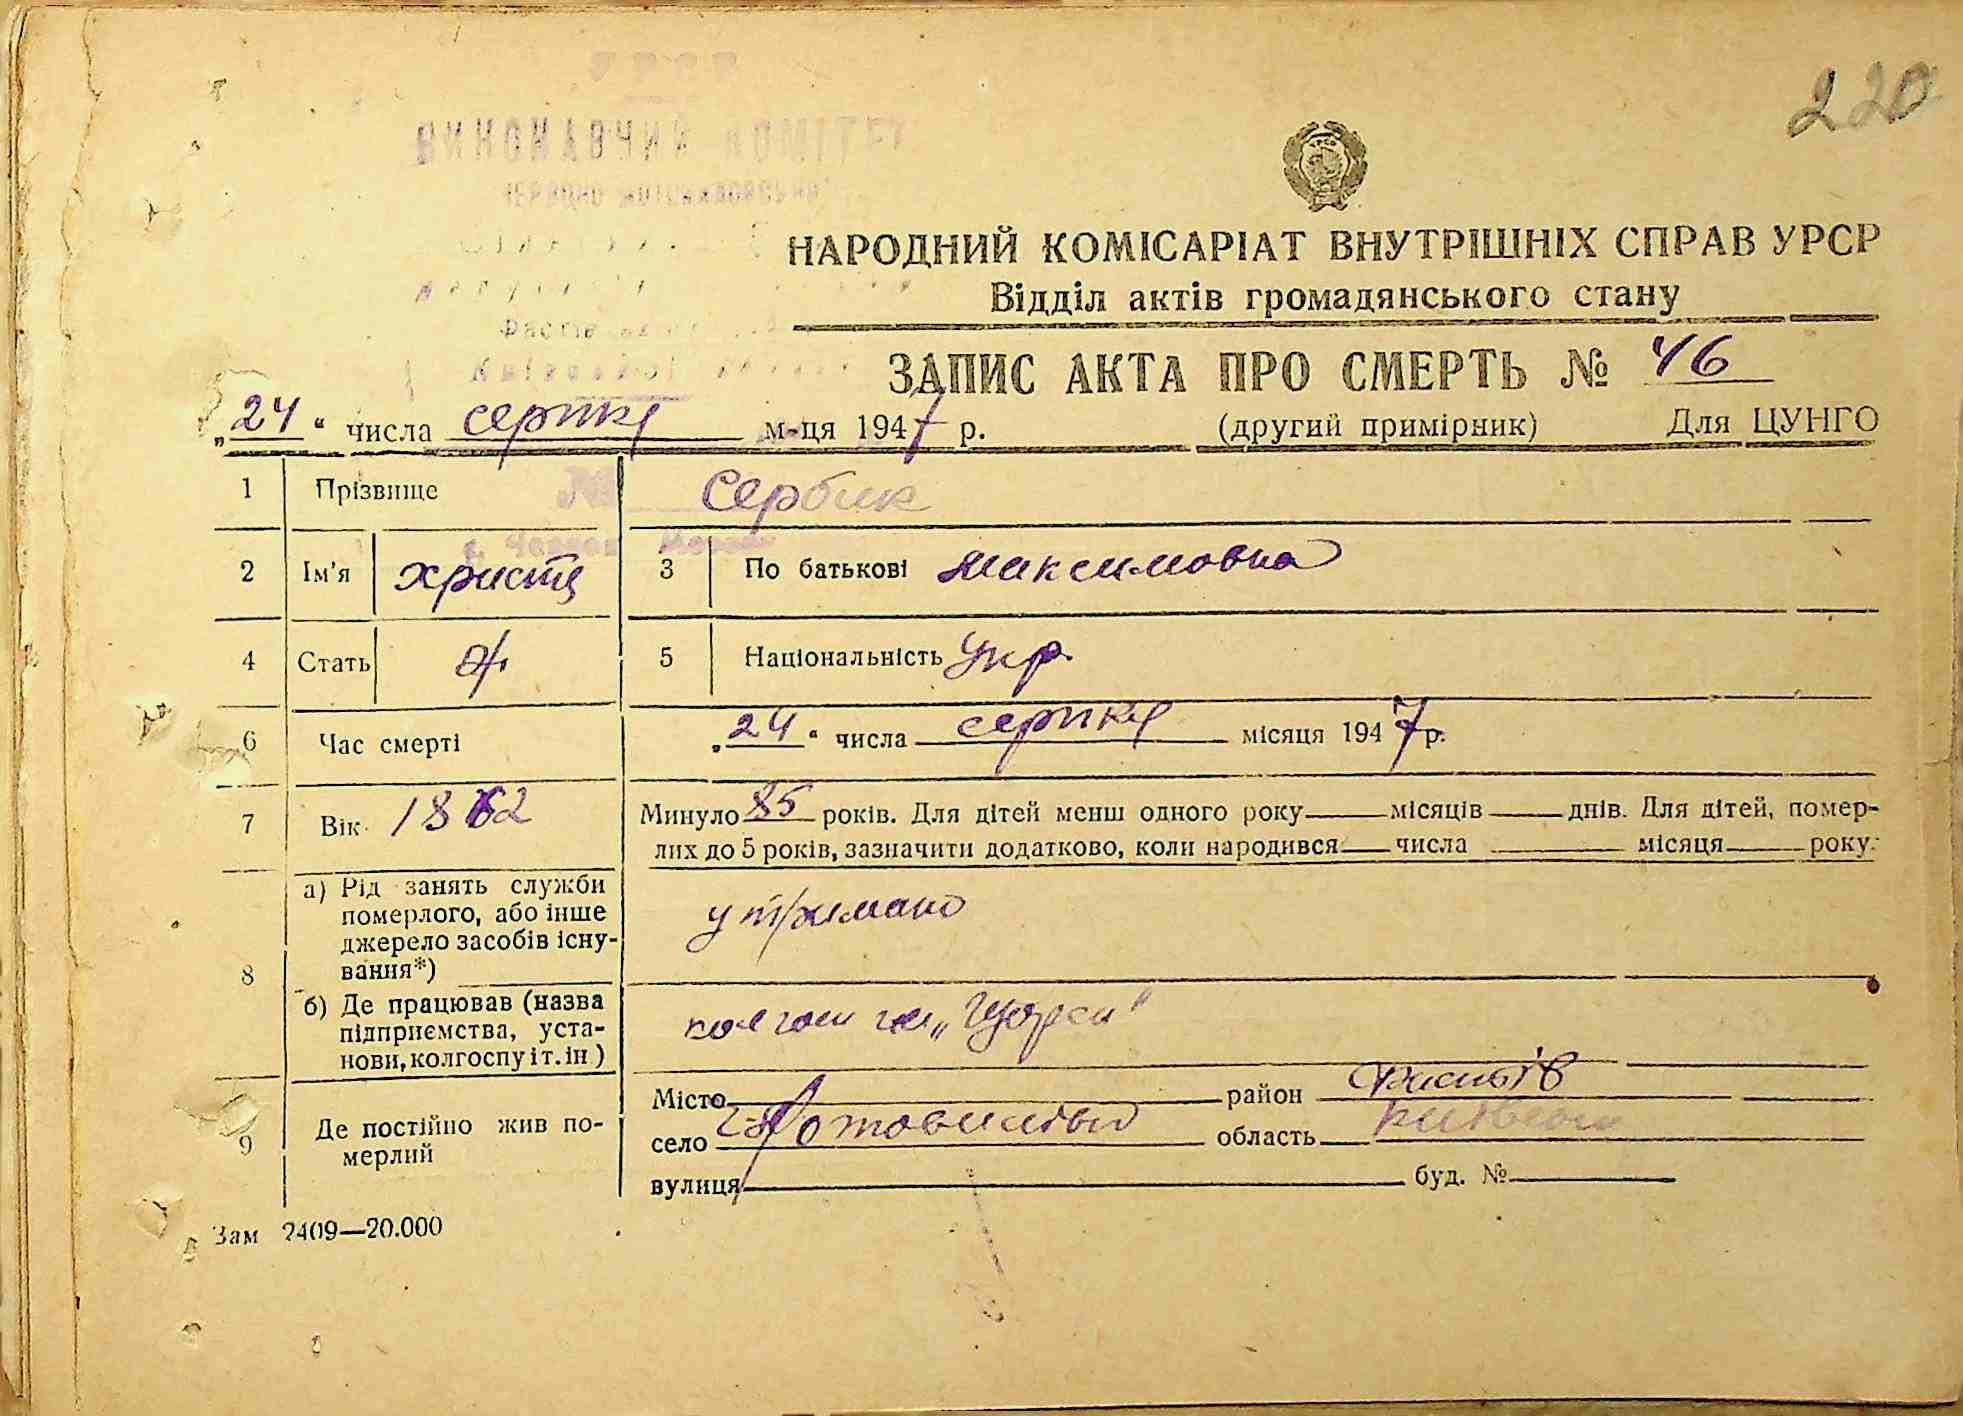 220
НАРОДНИЙ КОМІСАРІАТ ВНУТРІШНІХ СПРАВ УРСР
Відділ актів громадянського стану
ЗАПИС АКТА ПРО СМЕРТЬ № 46
„24“ числа серпня м-ця 1947 р. (другий примірник) Для ЦУНГО
1 Прізвище Сербик
2 Ім'я Христя 3 По батькові Максимовна
4 Стать ж. 5 Національність Укр.
6 Час смерті „24“ числа серпня місяця 1947 р.
7 Вік 1862 Минуло 85 років. Для дітей менш одного року місяців днів. Для дітей, помер-
лих до 5 років, зазначити додатково, коли народився числа місяця року.
8 а) Рід занять служби
померлого, або інше
джерело засобів існу-
вання*)
б) Де працював (назва
підприємства, уста-
нови, колгоспу і т. ін)
колгосп „Щорса“
9 Де постійно жив по-
мерлий
Місто район Фастів
село область
вулиця буд. №
Зам 2409—20.000